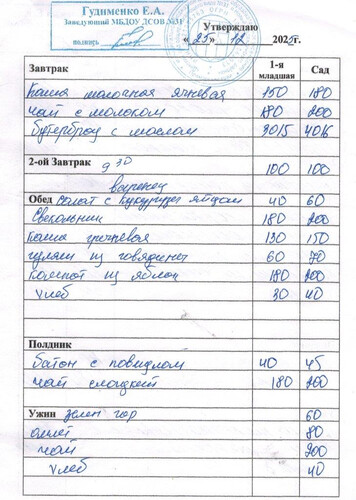 Гудименко Е.А.
Заведующий МБДОУ ДСОВ №31
подпись
Утверждаю
« 25 » 12 2025г.
Завтрак 1-я младшая Сад
Каша молочная ячневая 150 180
чай с молоком 180 200
бутерброд с маслом 30/5 40/5
2-ой Завтрак 9 30 100 100
варенец
Обед Салат с кукурузы яйцом 40 60
Свекольник 180 200
Каша гречневая 130 150
гуляш из говядины 60 70
Компот из яблок 180 200
хлеб 30 40
Полдник
батон с повидлом 40 45
чай сладкий 180 200
Ужин зелен гор 60
омлет 80
чай 200
хлеб 40